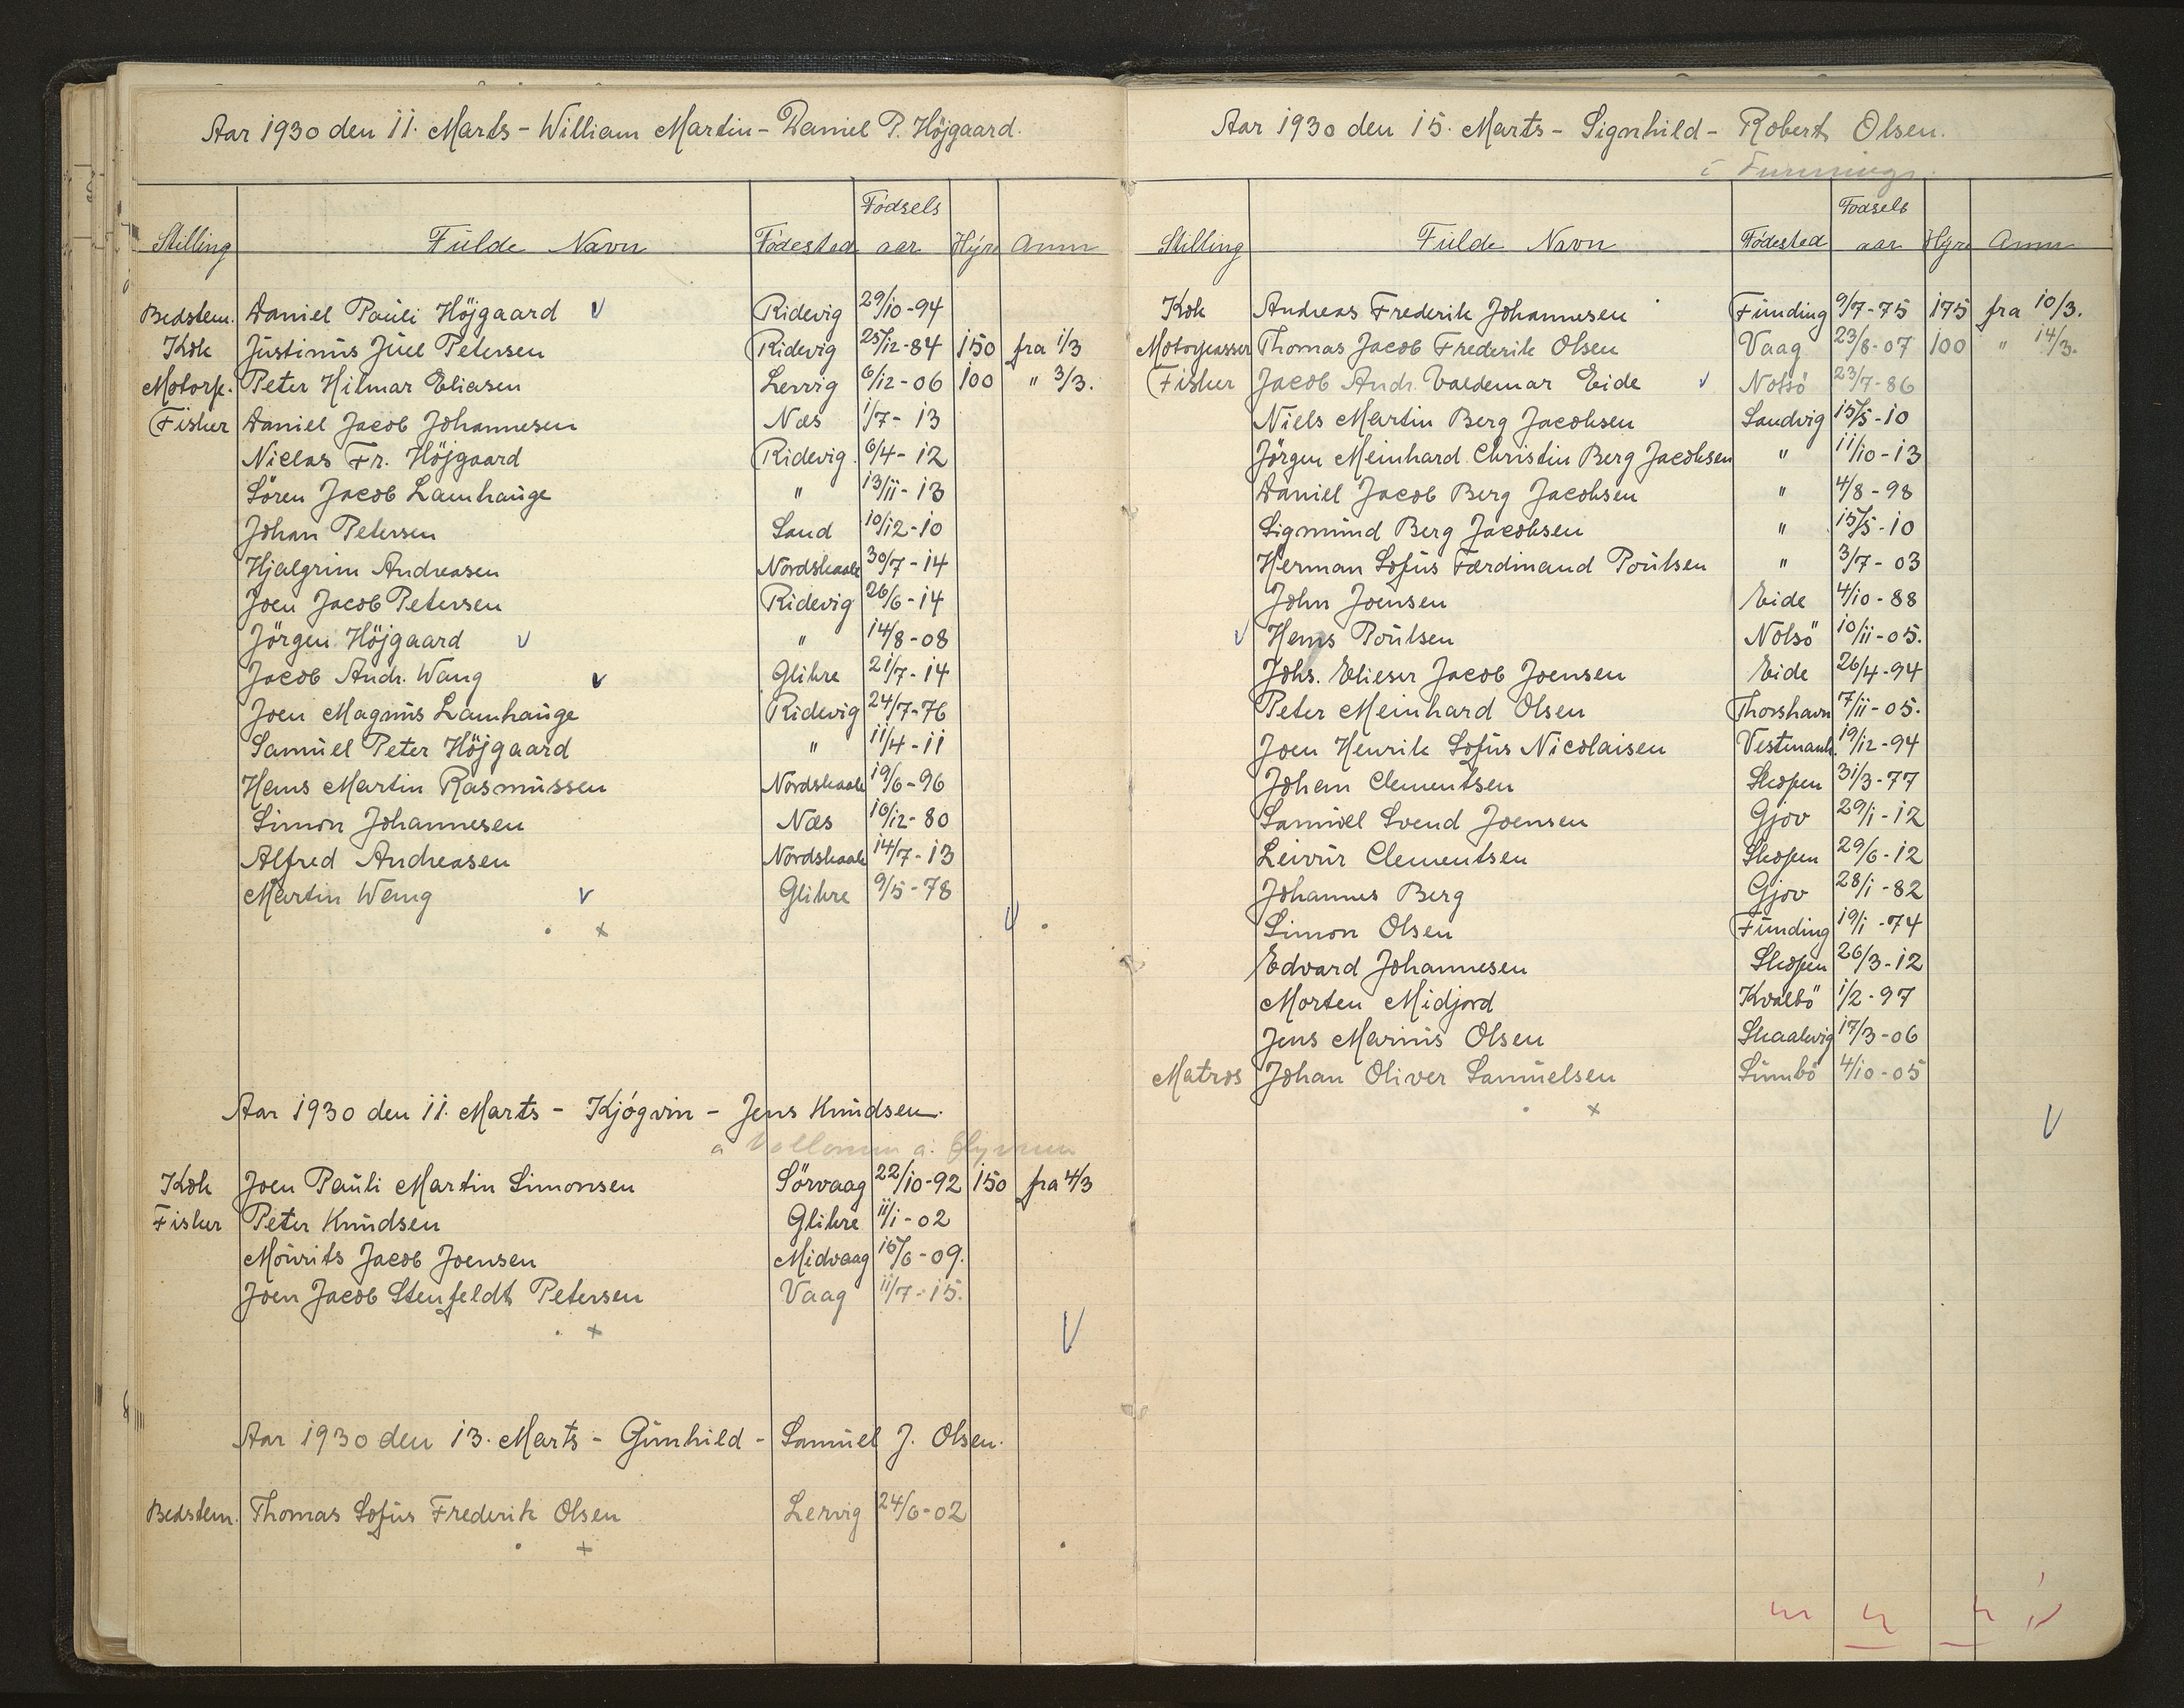 Aar 1930 den 11. Marts - William Martin - Daniel P. Höjgaard.
Stilling Fulde Navn Fødested Fødsels aar Hyre Anm
Bedstem. Daniel Pauli Höjgaard V Ridevig 29/10-94
Kok Justinus Juel Petersen Ridevig 25/12-84 150 fra 1/3
Motorp. Peter Hilmar Eliasen Lervig 6/12-06 100 " 3/3.
Fisker Daniel Jacob Johannesen Næs 1/7-13
Niclas Fr. Höjgaard Ridevig 6/4-12
Sören Jacob Lamhauge " 13/11-13
Johan Petersen Sand 10/12-10
Hjalgrim Andreasen Nordskaale 30/7-14
Joen Jacob Petersen Ridevig 26/6-14
Jörgen Höjgaard V " 14/8-08
Jacob Andr. Wang V Glibre 21/7-14
Joen Magnus Lamhauge Ridevig 24/7-76
Samuel Peter Höjgaard " 11/4-11
Hans Martin Rasmussen Nordskaale 19/6-96
Simon Johannesen Næs 16/12-80
Alfred Andreasen Nordskaale 14/7-13
Martin Wang V Glibre 9/5-78
x V
Aar 1930 den 11. Marts - Kjøgvin - Jens Knudsen.
Kok Joen Pauli Martin Simonsen Sörvaag 22/10-92 150 fra 4/3
Fisker Peter Knudsen Glibre 11/1-02
Mourits Jacob Joensen Midvaag 15/6-09.
Joen Jacob Stenfeldt Petersen Vaag 11/7-15.
x V
Aar 1930 den 13. Marts - Gunhild - Samuel J. Olsen.
Bedstem. Thomas Sofus Frederik Olsen Lervig 24/6-02
x
Aar 1930 den 15. Marts - Signhild - Robert Olsen.
i Funningi.
Stilling Fulde Navn Fødested Fødsels aar Hyre Anm
Kok Andreas Frederik Johannesen Funding 9/7-75 175 fra 10/3.
Motorpasser Thomas Jacob Frederik Olsen Vaag 23/8-07 100 " 14/3.
Fisker Jacob Andr. Valdemar Eide V Nolsö 23/7-86
Niels Martin Berg Jacobsen Sandvig 15/5-10
Jörgen Meinhard Christin Berg Jacobsen " 11/10-13
Daniel Jacob Berg Jacobsen " 4/8-98
Sigmund Berg Jacobsen " 15/5-10
Herman Sofus Færdinand Poulsen " 3/7-03
John Joensen Eide 4/10-88
V Hans Poulsen Nolsö 10/11-05.
Johs. Elieser Jacob Joensen Eide 26/4-94
Peter Meinhard Olsen Thorshavn 7/11-05.
Joen Henrik Sofus Nicolaisen Vestmanh. 19/12-94
Johan Clementsen Skopen 31/3-77
Samuel Svend Joensen Gjov 29/1-12
Leivur Clementsen Skopen 29/6-12
Johannes Berg Gjov 28/1-82
Simon Olsen Funding 19/1-74
Edvard Johannesen Skopen 26/3-12
Morten Midjord Kvalbö 1/2-97
Jens Marius Olsen Skaalevig 17/3-06
Matros Johan Oliver Samuelsen Sumbö 4/10-05
x V